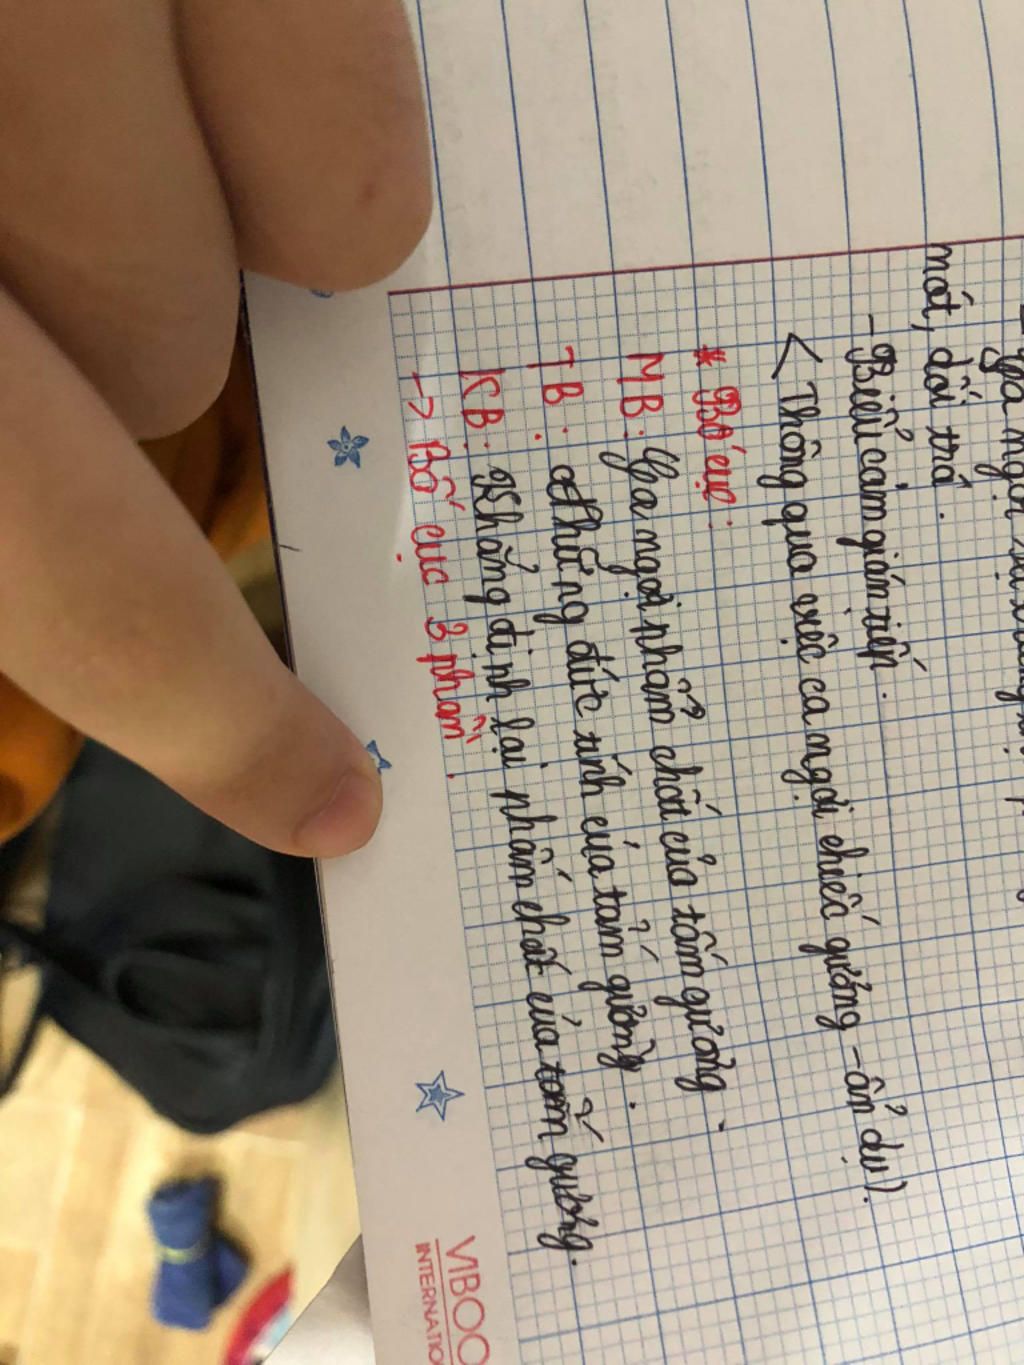 ngợi
mát, dối trá.
- Biểu cảm gián tiếp.
< Thông qua việc ca ngợi chiếc gương - ẩn dụ).
* Bố cục:
MB: Ca ngợi phẩm chất của tấm gương.
TB: Những đức tính của tấm gương.
KB: Khẳng định lại phẩm chất của tấm gương.
-> Bố cục 3 phần.
VIBOO
INTERNATIO